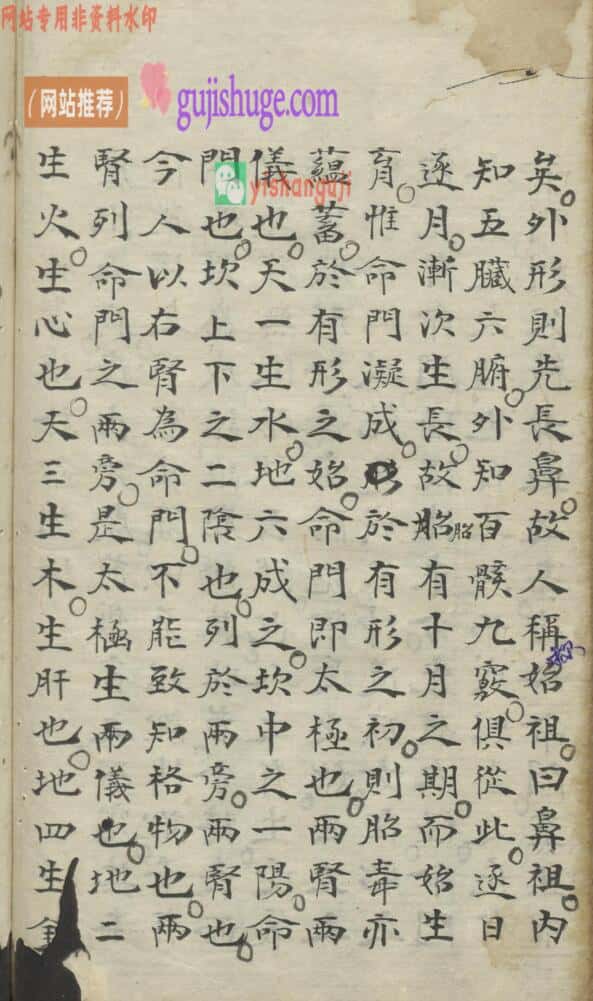 网站专用非资料水印
（网站推荐）
gujishuge.com
yishanguji
矣。外形則先長鼻。故人稱始祖。曰鼻祖。内
知五臟六腑。外知百骸九竅。俱從此。逐日
逐月。漸次生長。故胎胎有十月之期。而始生
育。惟命門凝成。於有形之初。則胎毒亦
蘊蓄。於有形之始。命門即太極也。兩腎兩
儀也。天一生水。地六成之。坎中之一陽。命
門也。坎上下之二陰也。列於兩旁。兩腎也。
今人以右腎為命門。不能致知格物也。兩
腎列命門之兩旁。是太極生兩儀也。地二
生火。生心也。天三生木。生肝也。地四生金